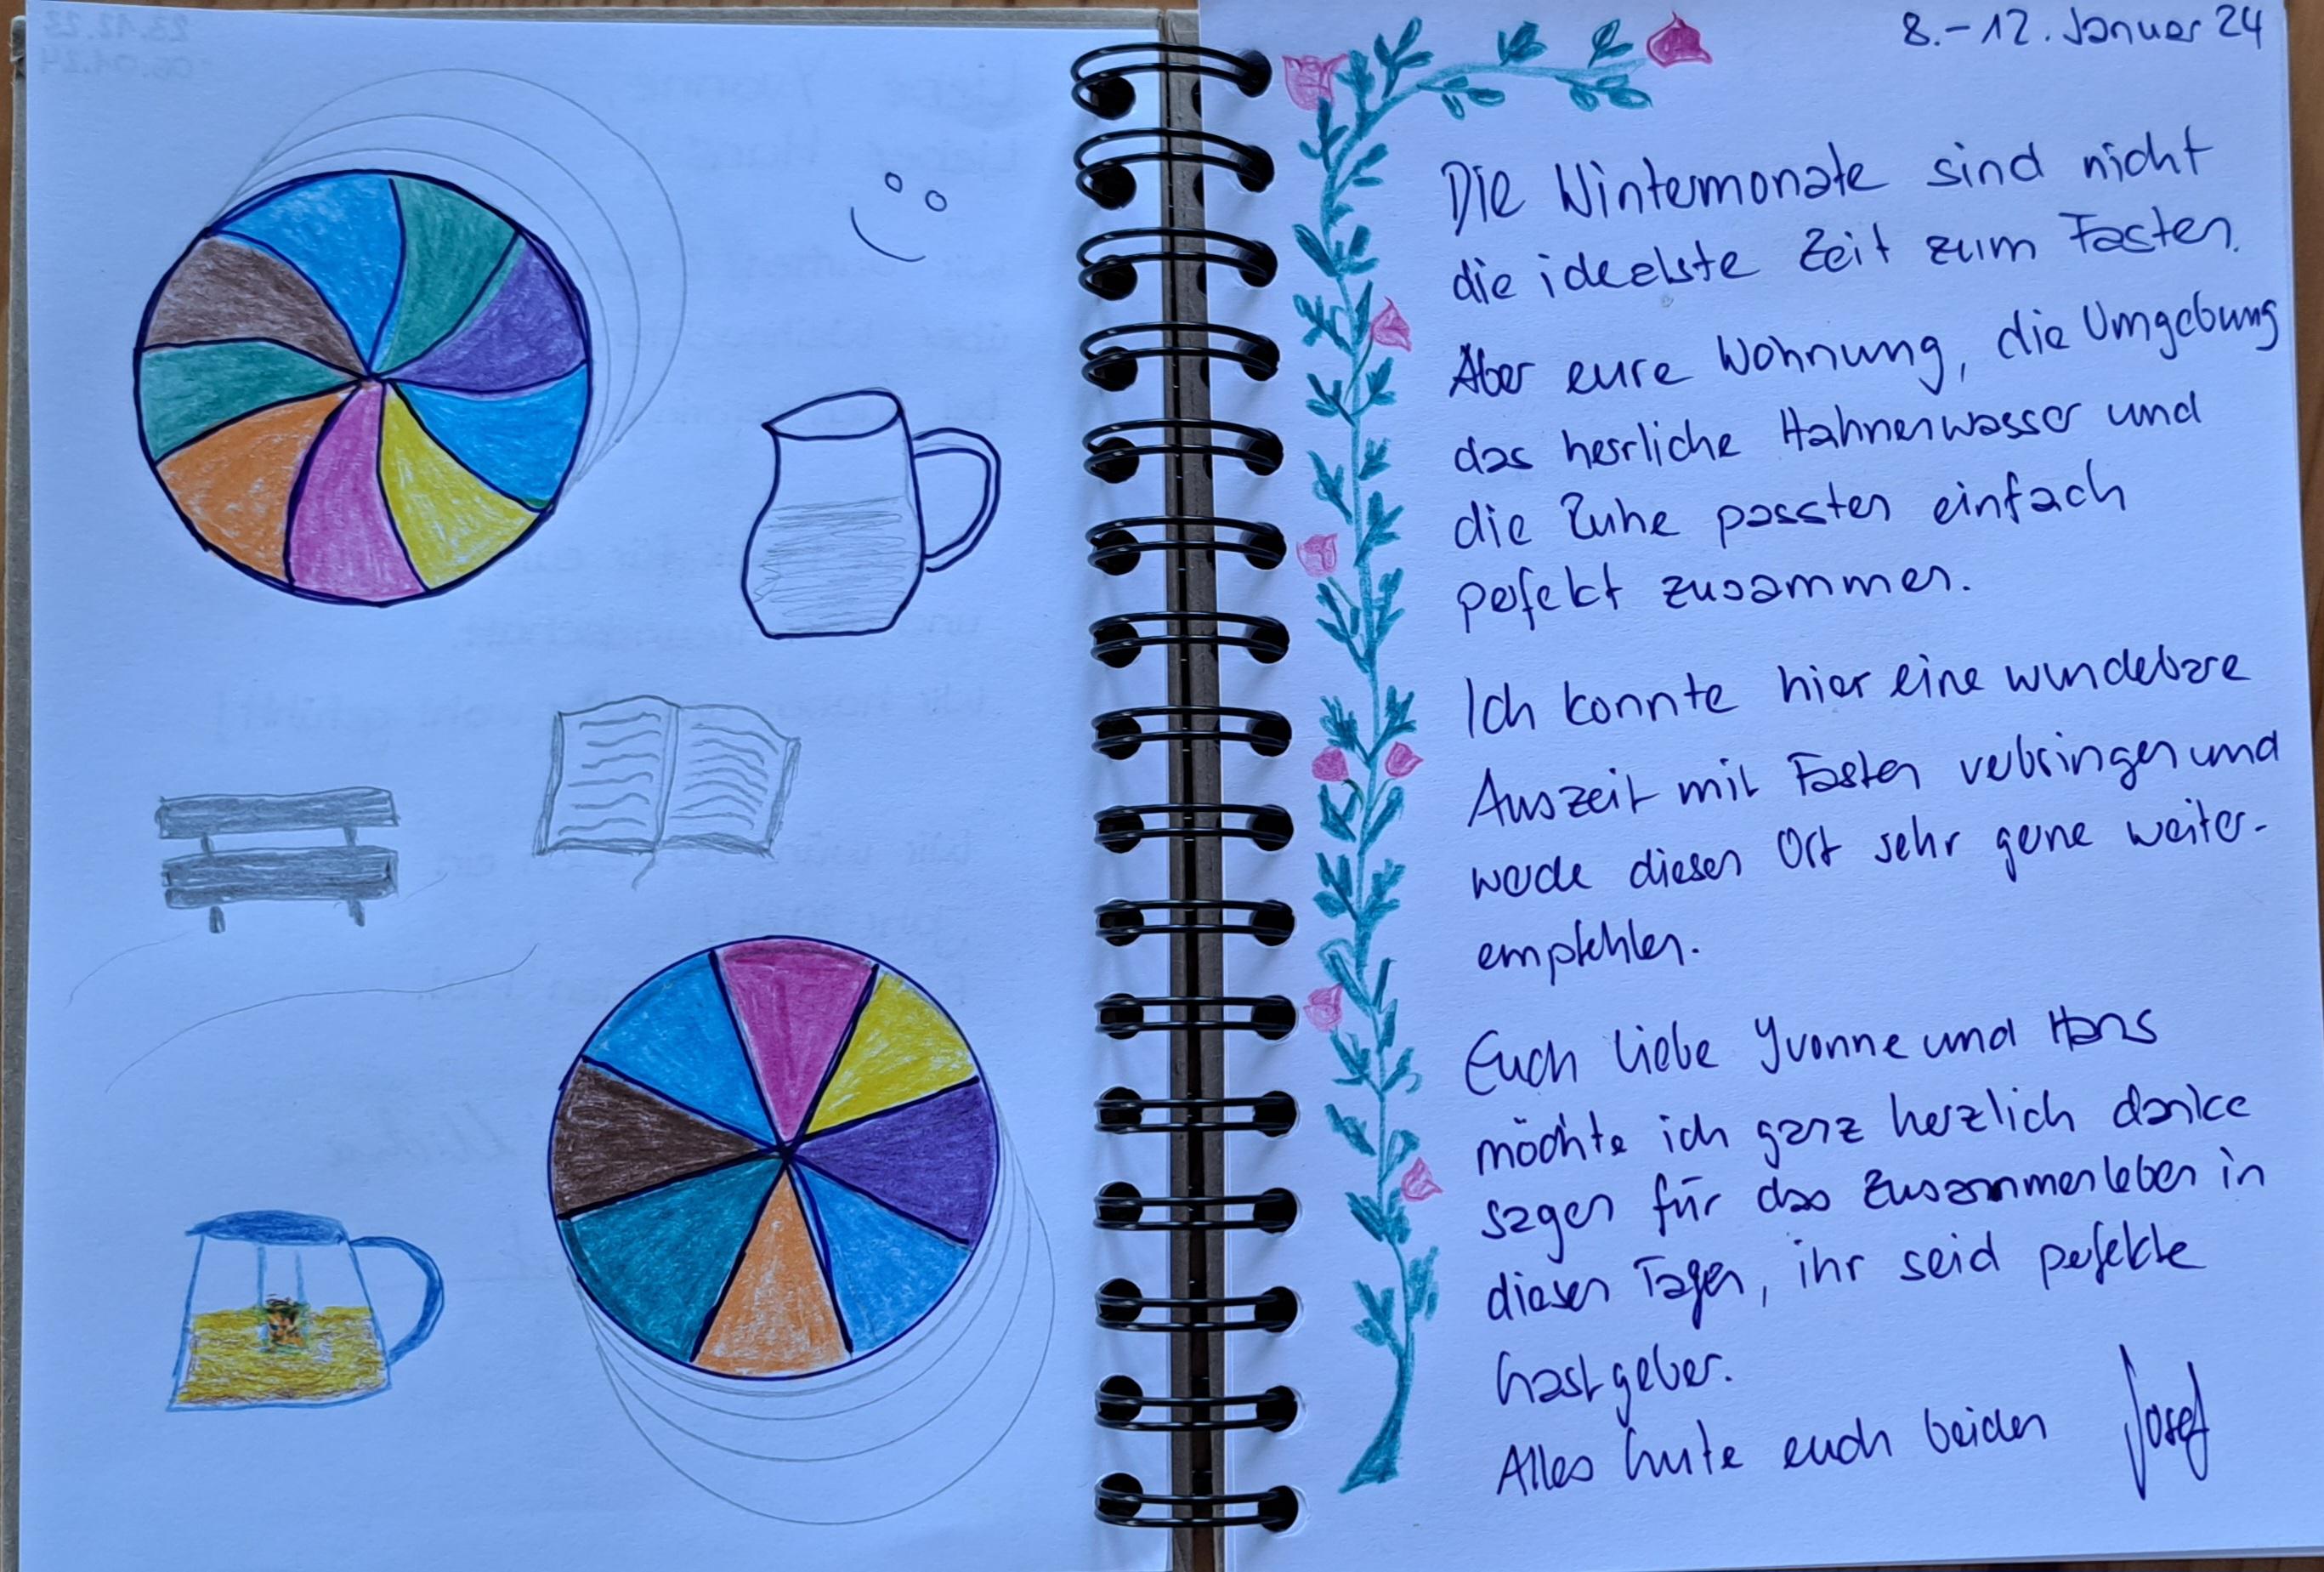 8.-12. Januar 24
Die Wintermonate sind nicht
die idealste Zeit zum Fasten.
Aber eure Wohnung, die Umgebung
das herrliche Hahnenwasser und
die Ruhe passten einfach
perfekt zusammen.
Ich konnte hier eine wunderbare
Auszeit mit Fasten verbringen und
werde diesen Ort sehr gerne weiter-
empfehlen.
Euch liebe Yvonne und Hans
möchte ich ganz herzlich danke
sagen für das Zusammenleben in
diesen Tagen, ihr seid perfekte
Gastgeber.
Alles Gute euch beiden Josef